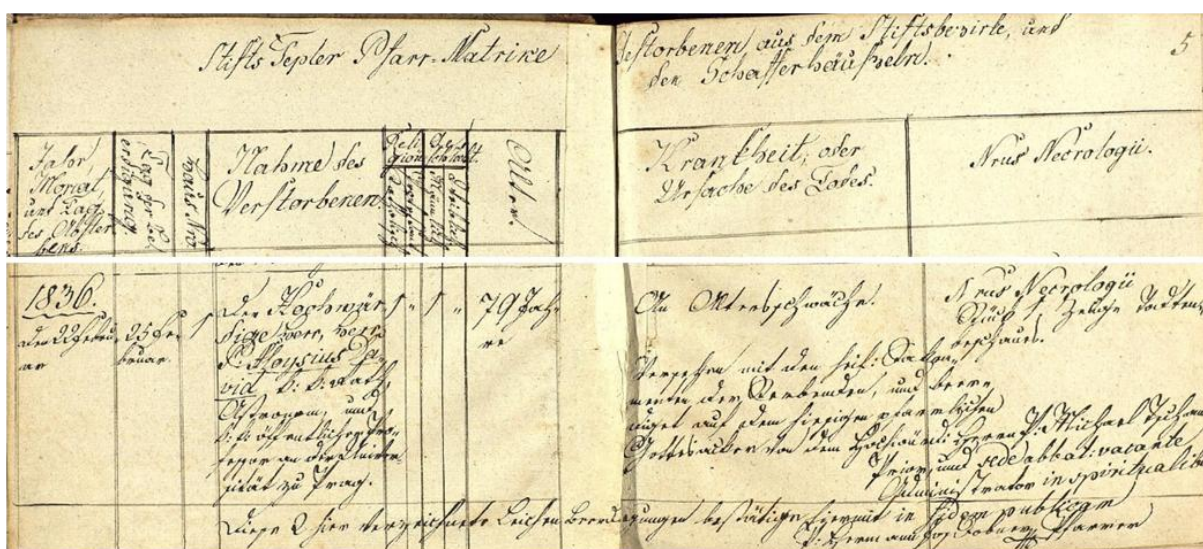 Stifts Tepler Pfarr-Matrike
Gestorbenen, aus dem Stiftsbezirke, und
den Schafferhäuseln.
5
Jahr,
Monat,
und Tag
des Abster
bens.
Tag der Be
erdigung
Haus Nro
Nahme des
Verstorbenen
Reli
gion
Katholisch
Geschlecht.
Männlich
Weiblich
Alter.
Krankheit, oder
Ursache des Todes.
Nrus Necrologii.
1836.
den 22 Febru
ar
25 Fe-
bruar.
1
Der Hochwür-
dige Herr, Herr
P. Aloysius Da-
vid k. k. Rath,
Astronom, und
k. k. öffentlicher Pro-
fessor an der Univer-
sität zu Prag.
1 " 1 "
79 Jah-
re
An Altersschwäche.
Versehen mit den heil: Sakra-
menten der Sterbenden, und beer-
diget auf dem hiesigen pfarrlichen
Gottesacker von dem Hochwürd: Herrn P: Michael
Prior, und sede abbat: vacante
Administrator in spiritualibus
Nrus Necrologii
1, Todten
beschauer.
Diese 2 hier verzeichnete Leichen Beerdigungen bestätige hiermit in fidem publicam
Pfarrer